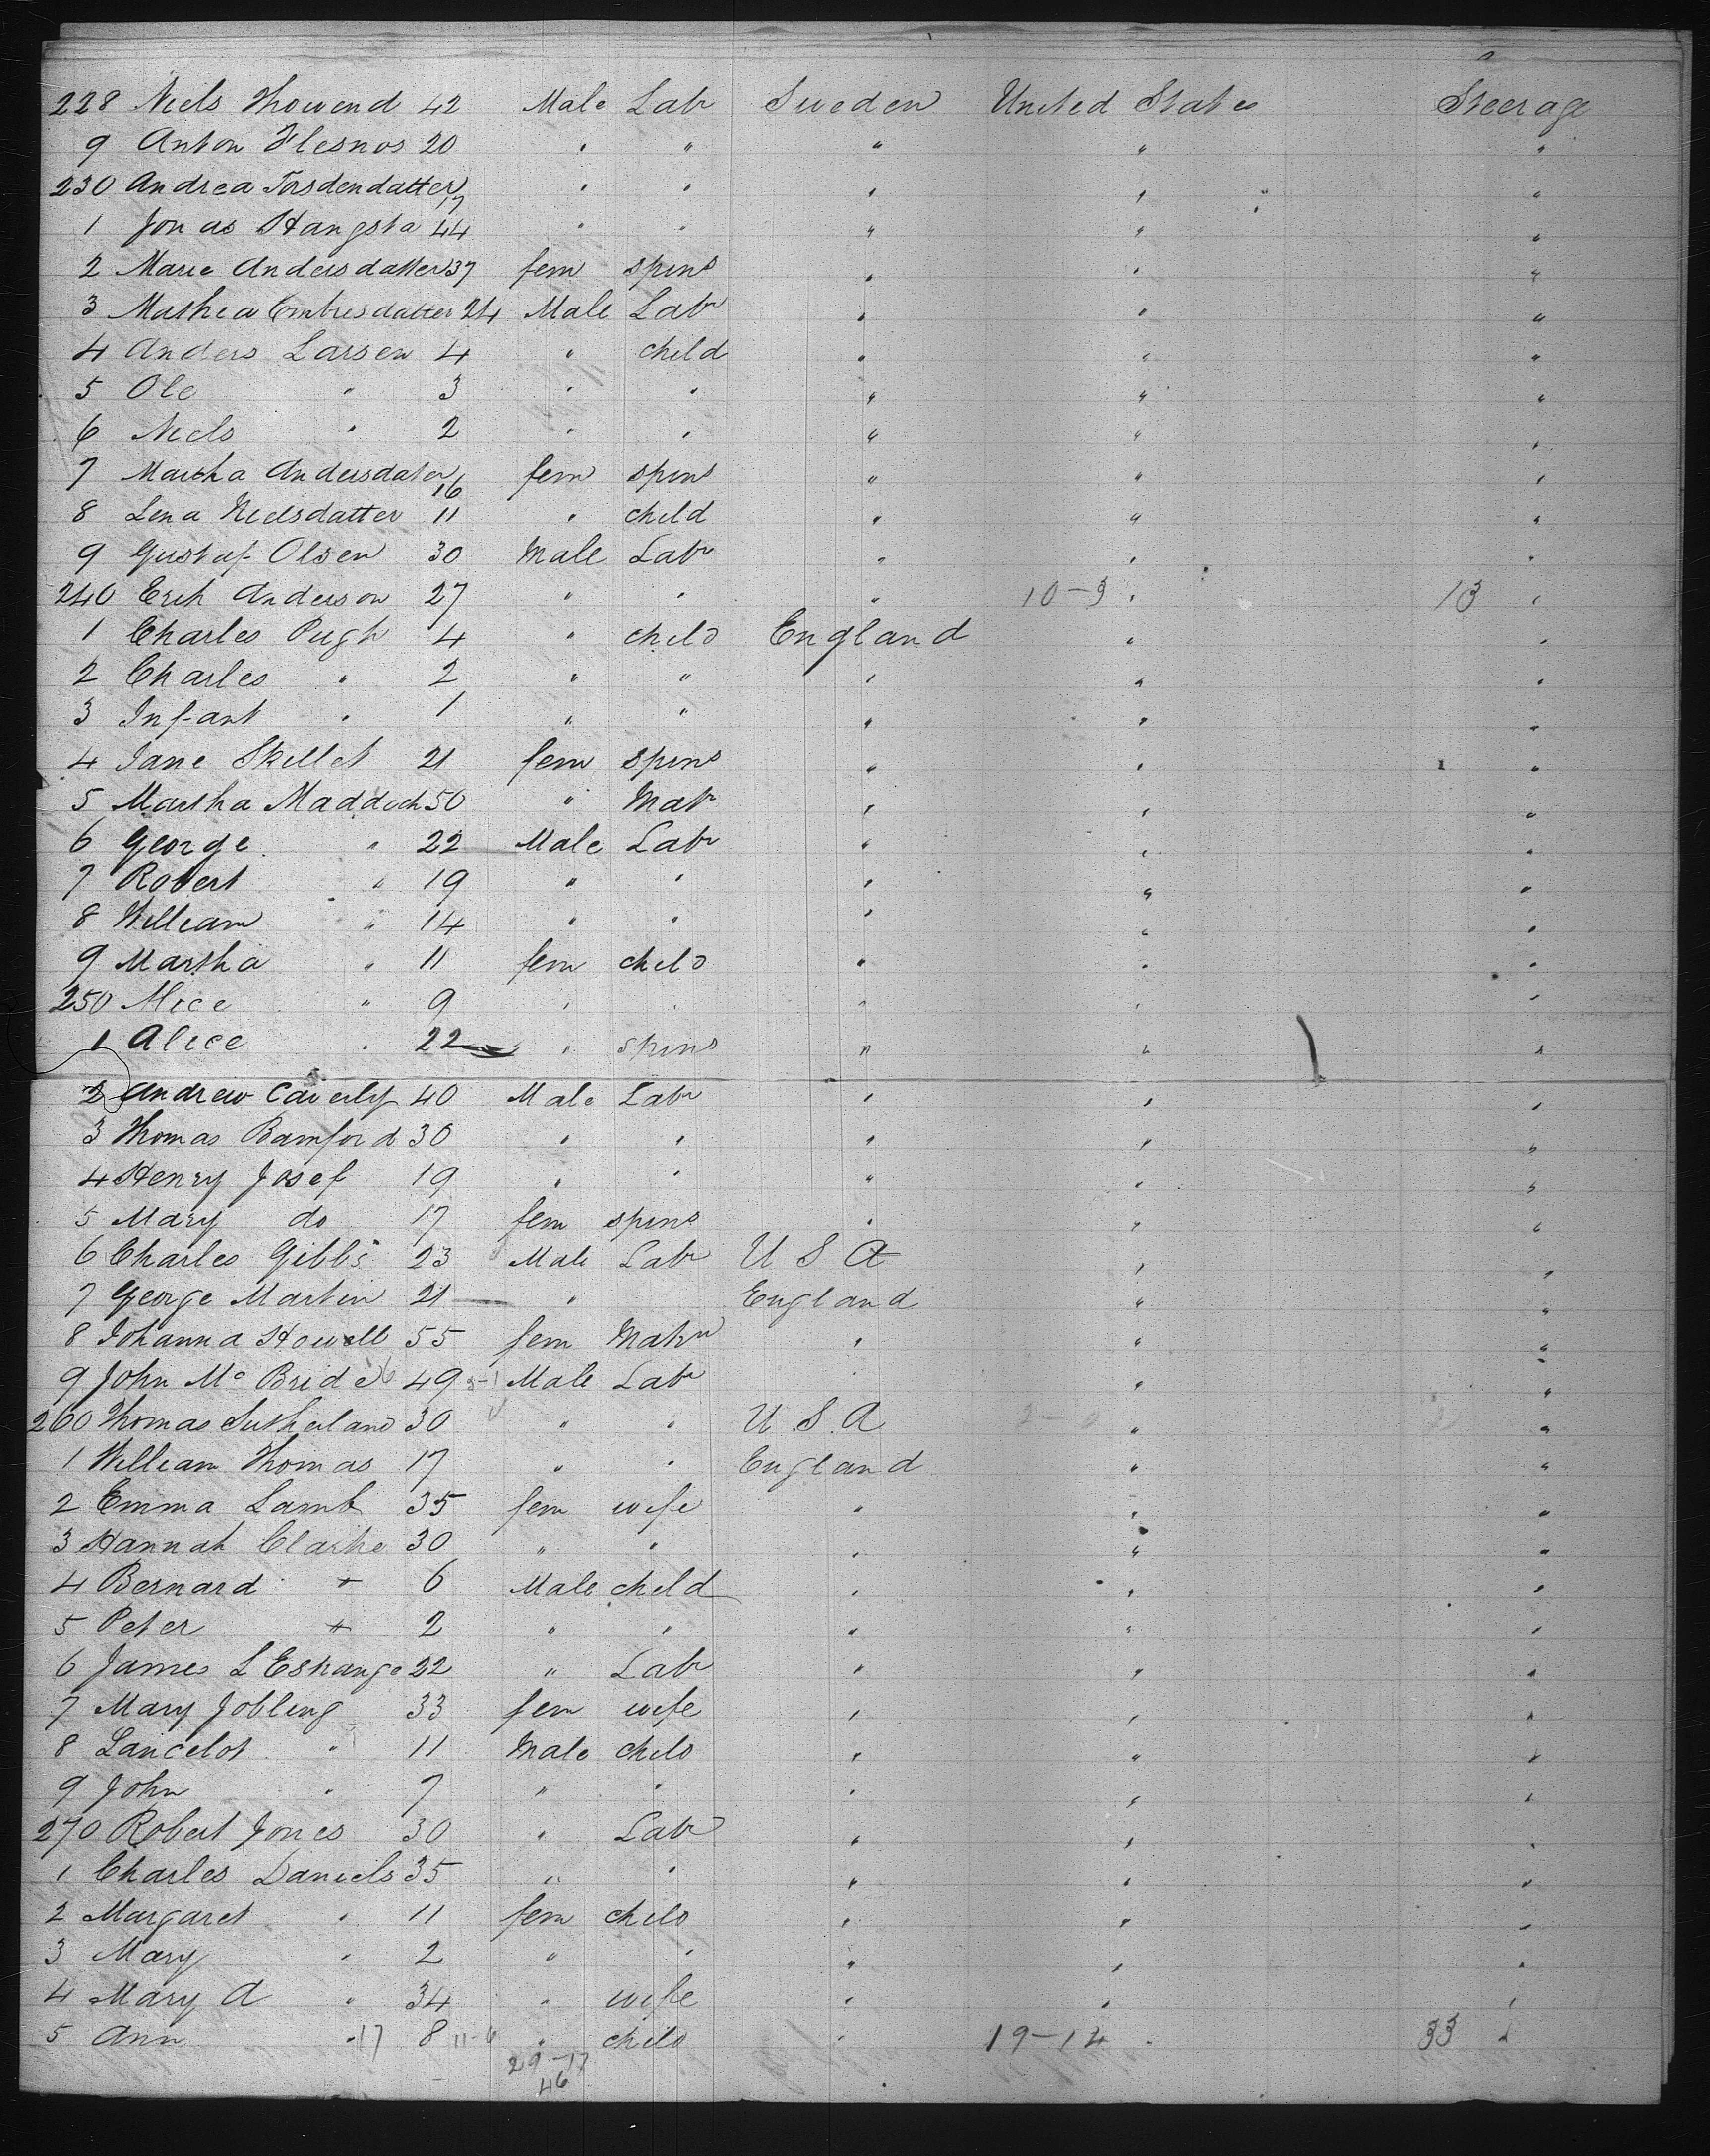 228 Niels Thowend 42 Male Labr Sweden United States Steerage
9 Anton Flesnos 20 " " " " "
230 Andrea Torsdendatter 17 " " " " "
1 Jonas Stangsta 44 " " " " "
2 Marie Andersdatter 37 fem spins " " "
3 Mathea Embresdatter 24 Male Labr " " "
4 Anders Larsen 4 " child " " "
5 Ole " 3 " " " " "
6 Niels " 2 " " " " "
7 Martha Andersdater 16 fem spins " " "
8 Lena Nielsdatter 11 " child " " "
9 Gustaf Olsen 30 Male Labr " " "
240 Erik Anderson 27 " " " 10-3 " 13 "
1 Charles Pugh 4 " child England " "
2 Charles " 2 " " " " "
3 Infant " 1 " " " " "
4 Jane Skellet 21 fem spins " " "
5 Martha Maddock 50 " Matr " " "
6 George " 22 Male Labr " " "
7 Robert " 19 " " " " "
8 William " 14 " " " " "
9 Martha " 11 fem child " " "
250 Alice " 9 " " " " "
1 Alice " 22 " spins " " "
2 Andrew Caverly 40 Male Labr " " "
3 Thomas Bamford 30 " " " " "
4 Henry Josef 19 " " " " "
5 Mary do 17 fem spins " " "
6 Charles Gibbs 23 Male Labr U S A " "
7 George Martin 21 " England " "
8 Johanna Howell 55 fem Matrn " " "
9 John Mc Bride 49 Male Labr " " "
260 Thomas Sutherland 30 " " U.S.A " "
1 William Thomas 17 " " England " "
2 Emma Lamb 35 fem wife " " "
3 Hannah Clarke 30 " " " " "
4 Bernard " 6 Male child " " "
5 Peter " 2 " " " " "
6 James L Estrange 22 " Labr " " "
7 Mary Jobling 33 fem wife " " "
8 Lancelot " 11 Male child " " "
9 John " 7 " " " " "
270 Robert Jones 30 " Labr " " "
1 Charles Daniels 35 " " " " "
2 Margaret " 11 fem child " " "
3 Mary " 2 " " " " "
4 Mary A " 34 " wife " " "
5 Ann " 17 8 11-6 " child " 19-14 " 33 "
29-17
46